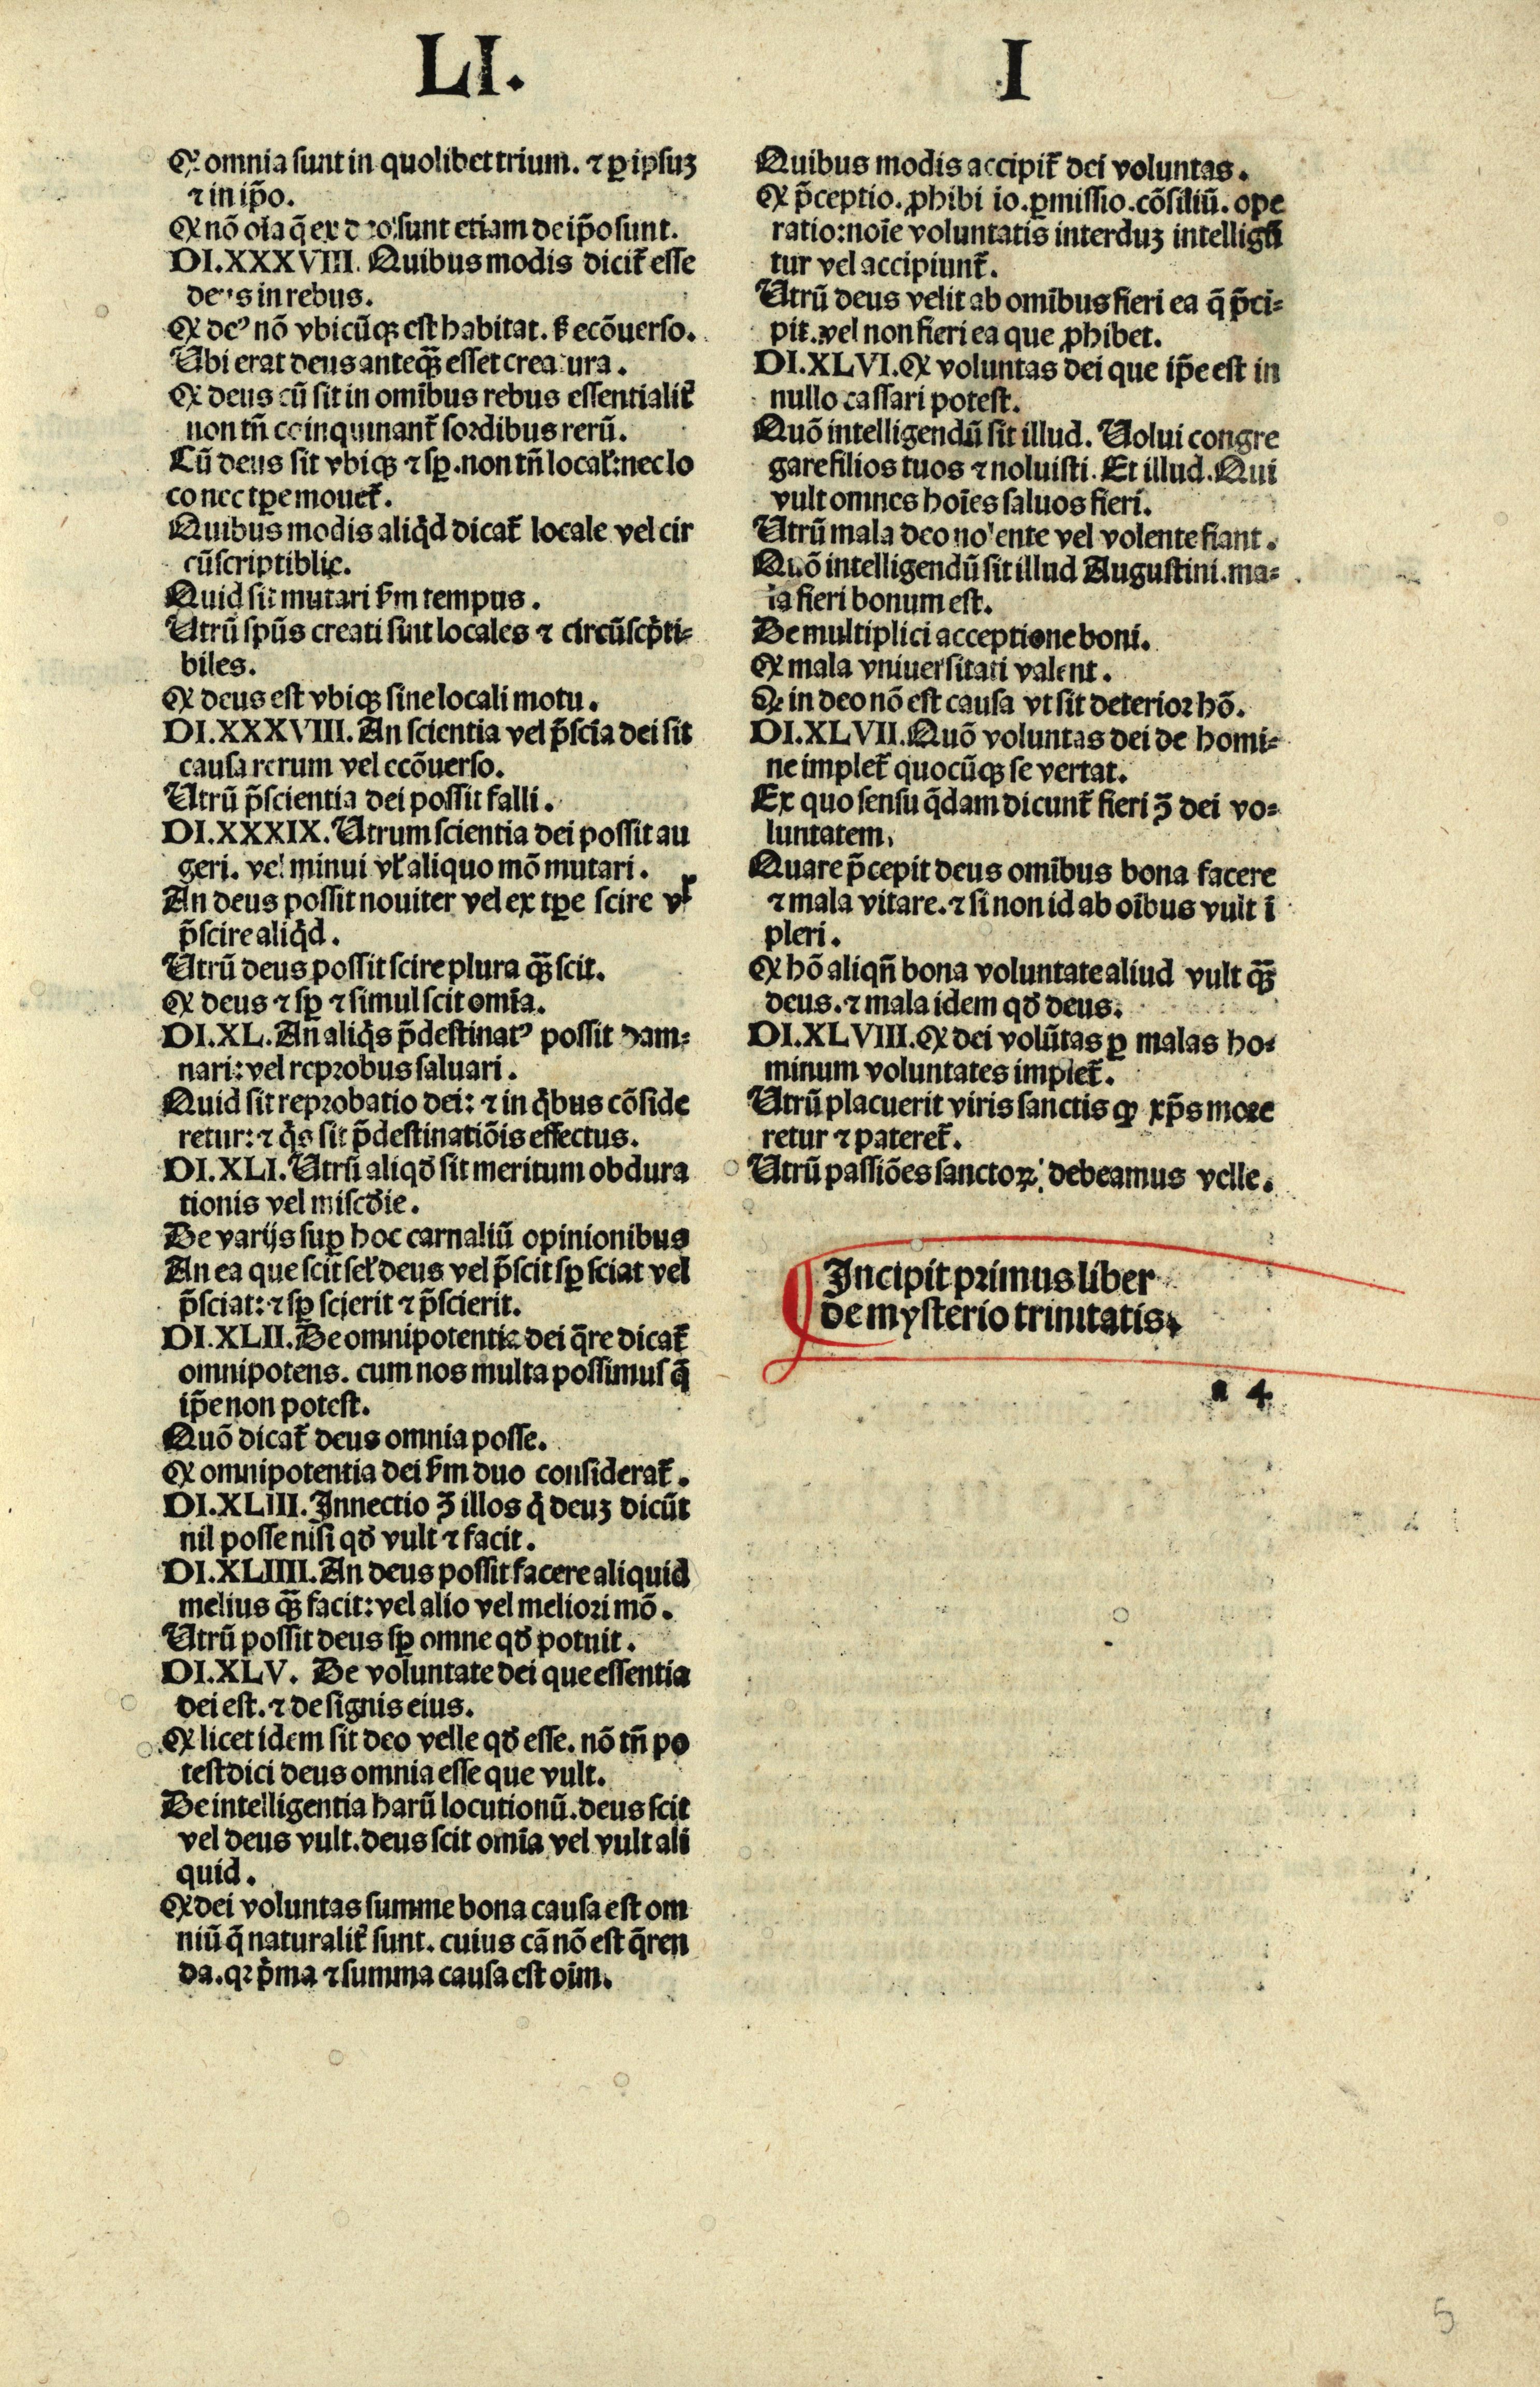 LI. I
Qꝫ omnia sunt in quolibet trium. ⁊ ꝑ ipsuꝫ
⁊ in ip̄o.
Qꝫ nō oīa q̄ ex deo sunt etiam de ip̄o sunt.
DI.XXXVIII. Quibus modis dicit̄ esse
deus in rebus.
Qꝫ deꝰ nō vbicūqꝫ est habitat. sꝫ ecōuerso.
Ubi erat deus anteqꝫ̄ esset creatura.
Qꝫ deus cū sit in om̄ibus rebus essentialit̄
non tn̄ coinquinant̄ sordibus rerū.
Cū deus sit vbiqꝫ ⁊ sꝑ. non tn̄ local̄: nec lo
co nec tꝑe mouet̄.
Quibus modis aliq̇d dicat̄ locale vel cir
cūscriptible.
Quid sit mutari ẜm tempus.
Utrū spūs creati sint locales ⁊ circūscp̄ti⸗
biles.
Qꝫ deus est vbiqꝫ sine locali motu.
DI.XXXVIII. An scientia vel p̄scīa dei sit
causa rerum vel ecōuerso.
Utrū p̄scientia dei possit falli.
DI.XXXIX. Utrum scientia dei possit au
geri. vel minui vl̄ aliquo mō mutari.
An deus possit nouiter vel ex tꝑe scire vl̄
p̄scire aliq̇d.
Utrū deus possit scire plura qꝫ̄ scit.
Qꝫ deus ⁊ sꝑ ⁊ simul scit om̄ia.
DI.XL. An aliq̇s p̄destinatꝰ possit dam⸗
nari: vel reprobus saluari.
Quid sit reprobatio dei: ⁊ in q̇bus cōside
retur: ⁊ q̇s sit p̄destinatiōis effectus.
DI.XLI. Utrū aliqd̄ sit meritum obdura
tionis vel miscd̄ie.
De varijs suꝑ hoc carnaliū opinionibus
An ea que scit sel̄ deus vel p̄scit sꝑ sciat vel
p̄sciat: ⁊ sꝑ scierit ⁊ p̄scierit.
DI.XLII. De omnipotentia dei q̄re dicat̄
omnipotens. cum nos multa possimus q̄
ip̄e non potest.
Quō dicat̄ deus omnia posse.
Qꝫ omnipotentia dei ẜm duo considerat̄.
DI.XLIII. Innectio ↄ̄ illos q̇ deuꝫ dicūt
nil posse nisi qd̄ vult ⁊ facit.
DI.XLIIII. An deus possit facere aliquid
melius qꝫ̄ facit: vel alio vel meliori mō.
Utrū possit deus sꝑ omne qd̄ potuit.
DI.XLV. De voluntate dei que essentia
dei est. ⁊ de signis eius.
Qꝫ licet idem sit deo velle qd̄ esse. nō tn̄ po
test dici deus omnia esse que vult.
De intelligentia harū locutionū. deus scit
vel deus vult. deus scit om̄ia vel vult ali
quid.
Qꝫ dei voluntas summe bona causa est om
niū q̄ naturalit̄ sunt. cuius cā nō est q̄ren
da. qꝛ p̄ma ⁊ summa causa est oīm.
Quibus modis accipit̄ dei voluntas.
Qꝫ p̄ceptio. ꝓhibi io. ꝑmissio. cōsiliū. ope
ratio: noīe voluntatis interduꝫ intelligū
tur vel accipiunt̄.
Utrū deus velit ab om̄ibus fieri ea q̄ p̄ci⸗
pit. vel non fieri ea que ꝓhibet.
DI.XLVI. Qꝫ voluntas dei que ip̄e est in
nullo cassari potest.
Quō intelligendū sit illud. Uolui congre
gare filios tuos ⁊ noluisti. Et illud. Qui
vult omnes hoīes saluos fieri.
Utrū mala deo nolente vel volente fiant.
Quō intelligendū sit illud Augustini. ma⸗
la fieri bonum est.
De multiplici acceptione boni.
Qꝫ mala vniuersitati valent.
Qꝫ in deo nō est causa vt sit deterior hō.
DI.XLVII. Quō voluntas dei de homi⸗
ne implet̄ quocūqꝫ se vertat.
Ex quo sensu q̇dam dicunt̄ fieri ↄ̄ dei vo⸗
luntatem.
Quare p̄cepit deus om̄ibus bona facere
⁊ mala vitare. ⁊ si non id ab oībus vult ī
pleri.
Qꝫ hō aliqn̄ bona voluntate aliud vult qꝫ̄
deus. ⁊ mala idem qd̄ deus.
DI.XLVIII. Qꝫ dei volūtas ꝑ malas ho⸗
minum voluntates implet̄.
Utrū placuerit viris sanctis ꝙ xp̄s more
retur ⁊ pateret̄.
Utrū passiões sanctoꝝ debeamus velle.
Incipit primus liber
de mysterio trinitatis.
a 4
5